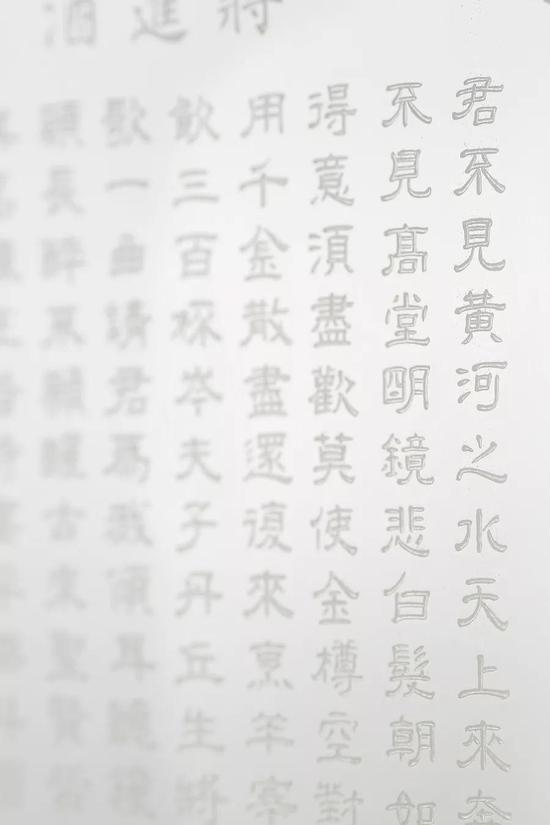 將進酒
君不見黃河之水天上來奔
不見髙堂明鏡悲白髮朝如
得意須盡歡莫使金樽空對
用千金散盡還復來烹羊宰
飲三百杯岑夫子丹丘生將
歌一曲請君為我傾耳聽
願長醉不願醒古來聖賢皆